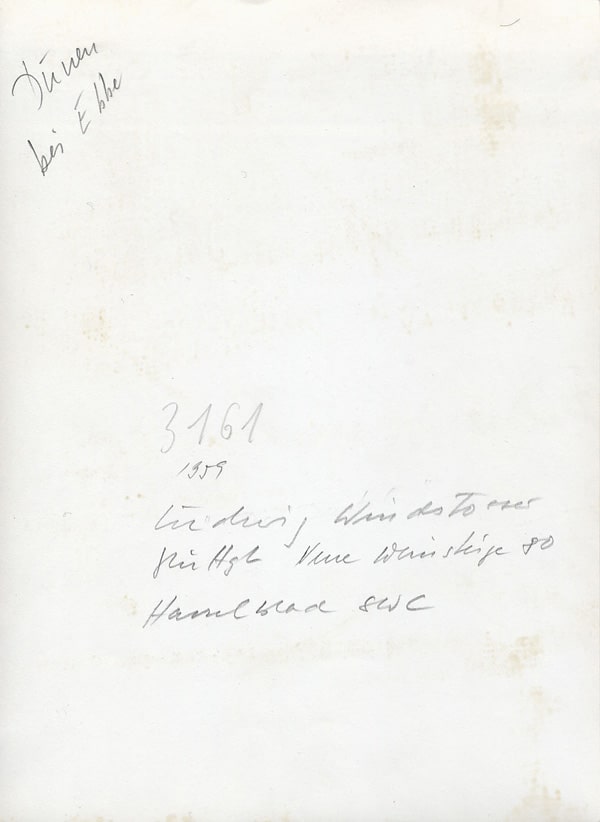 Dünen
bei Ebbe
3161
1959
Ludwig Windstosser
Stuttgt Neue Weinsteige 80
Hasselblad SWC